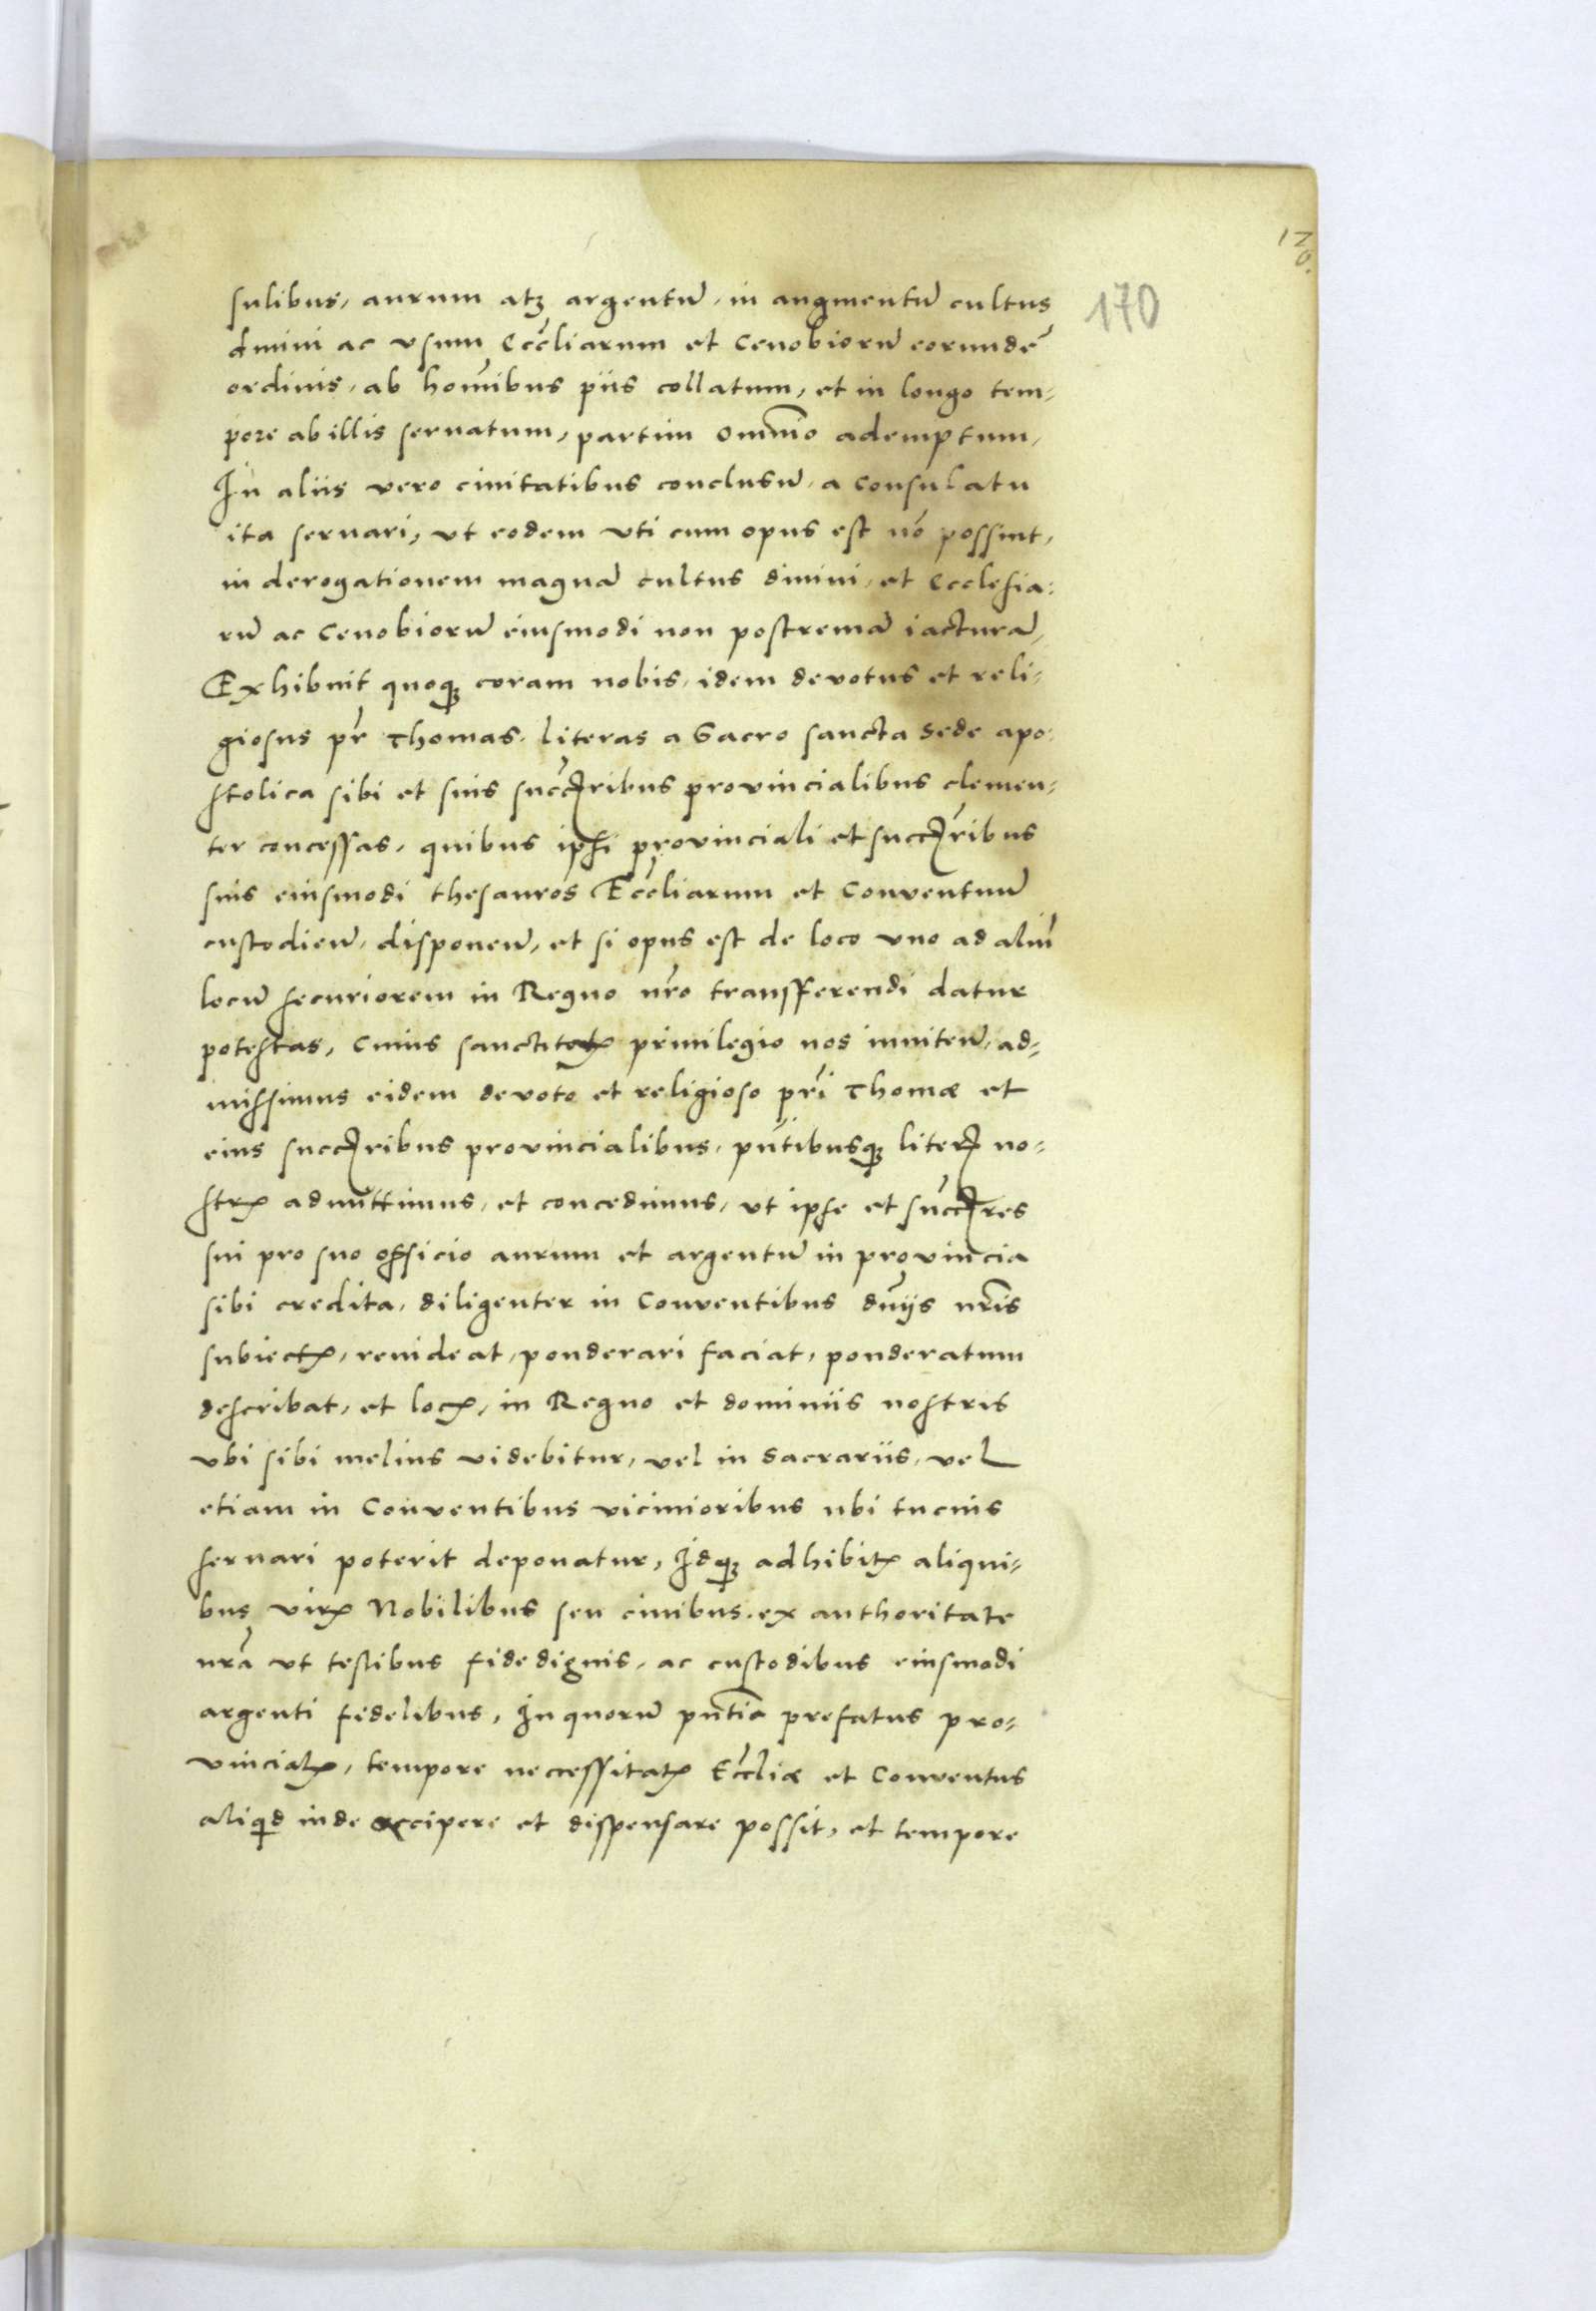 170.
170
sulibus, aurum atqꝫ argentū, in augmentū cultus
diuini ac vsum Eccl̃iarum et Cenobiorū eorundē
ordinis, ab hoĩnibus piis collatum, et in longo tem-
pore ab illis seruatum, partim omnĩo ademptum,
In aliis vero ciuitatibus conclusū, a Consulatu
ita seruari, vt eodem vti cum opus est nō possint,
in derogationem magnā cultus diuini, et Ecclesia-
rū ac Cenobiorū eiusmodi non postremā iacturā,
Exhibuit quoqꝫ coram nobis, idem devotus et reli-
giosus pr̃ Thomas, literas a Sacro sancta Sede apo-
stolica sibi et suis succꝫribus provincialibus clemen-
ter concessas, quibus ipsi provinciali et succꝫribus
suis eiusmodi thesauros Eccl̃iarum et Conventuū
custodieñ, disponeñ, et si opus est de loco vno ad aliū
locū securiorem in Regno nr̃o transfferendi datur
potestas, Cuius sanctitatꝭ priuilegio nos inniteñ, ad-
missimus eidem devoto et religioso pr̃i Thomæ et
eius succꝫribus provincialibus, pñtibusqꝫ literꝭ no-
strꝭ admittimus, et concedimus, vt ipse et succꝫres
sui pro suo officio aurum et argentū in provincia
sibi credita, diligenter in Conventibus dñijs nr̃is
subiectꝭ, reuideat, ponderari faciat, ponderatum
describat, et locꝭ, in Regno et dominiis nostris
vbi sibi melius videbitur, vel in Sacrariis, vel
etiam in Conventibus vicinioribus ubi tucius
seruari poterit deponatur, Idqꝫ adhibitꝭ aliqui-
bus virꝭ Nobilibus seu ciuibus, ex authoritate
nr̃a vt testibus fidedignis, ac custodibus eiusmodi
argenti fidelibus, In quorū pñtia prefatus pro-
vincialꝭ, tempore neccessitatꝭ Eccl̃iæ et Conventus
aliqd inde accipere et dispensare possit, et tempore